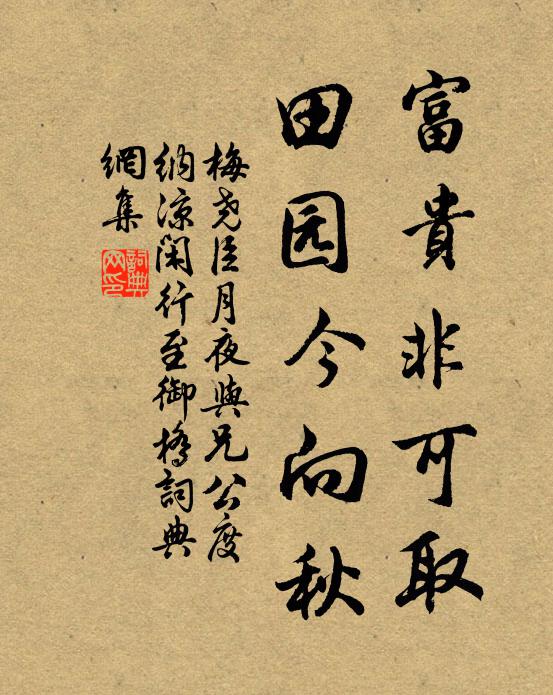 富貴非可取
田园今向秋
梅尧臣月夜與兄公度
纳凉閑行至御橋詞典
網集
詞典
网印